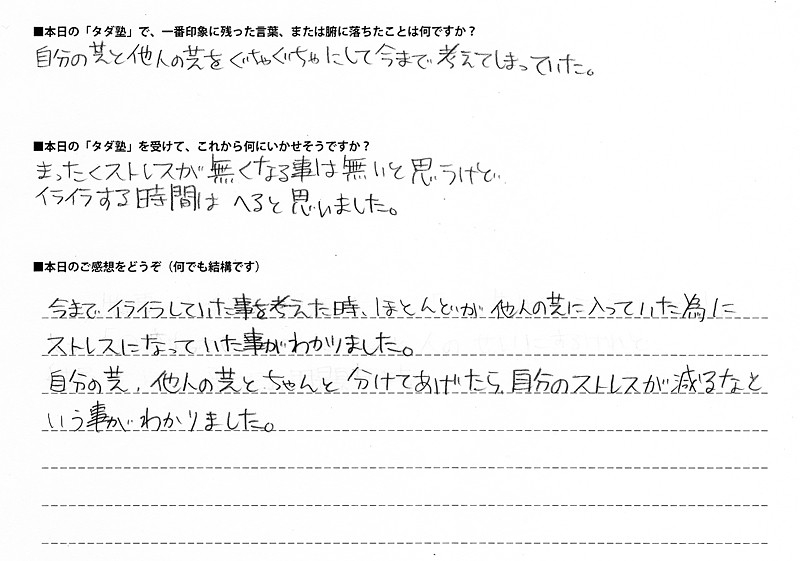 ■本日の「タダ塾」で、一番印象に残った言葉、または腑に落ちたことは何ですか？
自分の芝と他人の芝をぐちゃぐちゃにして今まで考えてしまっていた。
■本日の「タダ塾」を受けて、これから何にいかせそうですか？
まったくストレスが無くなる事は無いと思うけど
イライラする時間は へると思いました。
■本日のご感想をどうぞ（何でも結構です）
今までイライラしていた事を考えた時、ほとんどが他人の芝に入っていた為に
ストレスになっていた事がわかりました。
自分の芝、他人の芝とちゃんと分けてあげたら、自分のストレスが減るなと
いう事がわかりました。